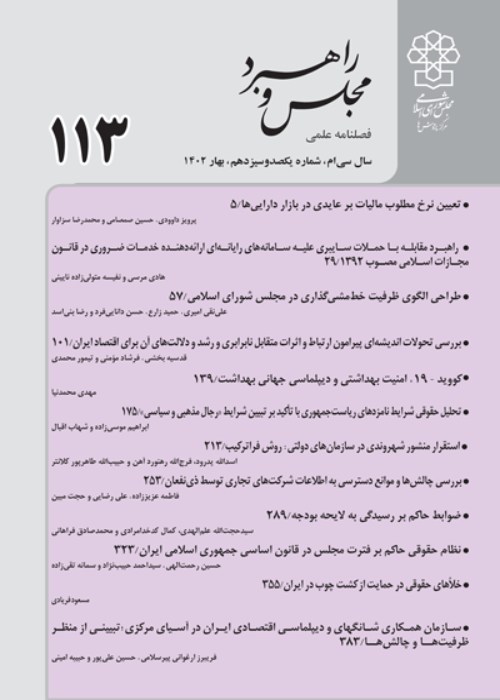 مجلس و راهبرد
مجلس شورای اسلامی
مرکز پژوهش‌ها
فصلنامه علمی
۱۱۳
سال سی‌ام، شماره یکصدوسیزدهم، بهار ۱۴۰۲
● تعیین نرخ مطلوب مالیات بر عایدی در بازار دارایی‌ها/۵
پرویز داوودی، حسین صمصامی و محمدرضا سزاوار
● راهبرد مقابله با حملات سایبری علیه سامانه‌های رایانه‌ای ارائه‌دهنده خدمات ضروری در قانون
مجازات اسلامی مصوب ۲۹/۱۳۹۲
هادی مرسی و نفیسه متولی‌زاده نایینی
● طراحی الگوی ظرفیت خط‌مشی‌گذاری در مجلس شورای اسلامی/۵۷
علی‌نقی امیری، حمید زارع، حسن دانایی‌فرد و رضا بنی‌اسد
● بررسی تحولات اندیشه‌ای پیرامون ارتباط و اثرات متقابل نابرابری و رشد و دلالت‌های آن برای اقتصاد ایران/۱۰۱
قدسیه بخشی، فرشاد مؤمنی و تیمور محمدی
● کووید - ۱۹، امنیت بهداشتی و دیپلماسی جهانی بهداشت/۱۳۹
مهدی محمدنیا
● تحلیل حقوقی شرایط نامزدهای ریاست‌جمهوری با تأکید بر تبیین شرایط «رجال مذهبی و سیاسی»/۱۷۵
ابراهیم موسی‌زاده و شهاب اقبال
● استقرار منشور شهروندی در سازمان‌های دولتی: روش فراترکیب/۲۱۳
اسدالله پدرود، فرج‌الله رهنورد آهن و حبیب‌الله طاهرپور کلانتر
● بررسی چالش‌ها و موانع دسترسی به اطلاعات شرکت‌های تجاری توسط ذی‌نفعان/۲۵۳
فاطمه عزیززاده، علی رضایی و حجت مبین
● ضوابط حاکم بر رسیدگی به لایحه بودجه/۲۸۹
سیدحجت‌الله علم‌الهدی، کمال کدخدامرادی و محمدصادق فراهانی
● نظام حقوقی حاکم بر فترت مجلس در قانون اساسی جمهوری اسلامی ایران/۳۲۳
حسین رحمت‌الهی، سیداحمد حبیب‌نژاد و سمانه تقی‌زاده
● خلأهای حقوقی در حمایت از کشت چوب در ایران/۳۵۵
مسعود فریادی
● سازمان همکاری شانگهای و دیپلماسی اقتصادی ایران در آسیای مرکزی؛ تبیینی از منظر
ظرفیت‌ها و چالش‌ها/۳۸۳
فریبرز ارغوانی پیرسلامی، حسین علی‌پور و حبیبه امینی